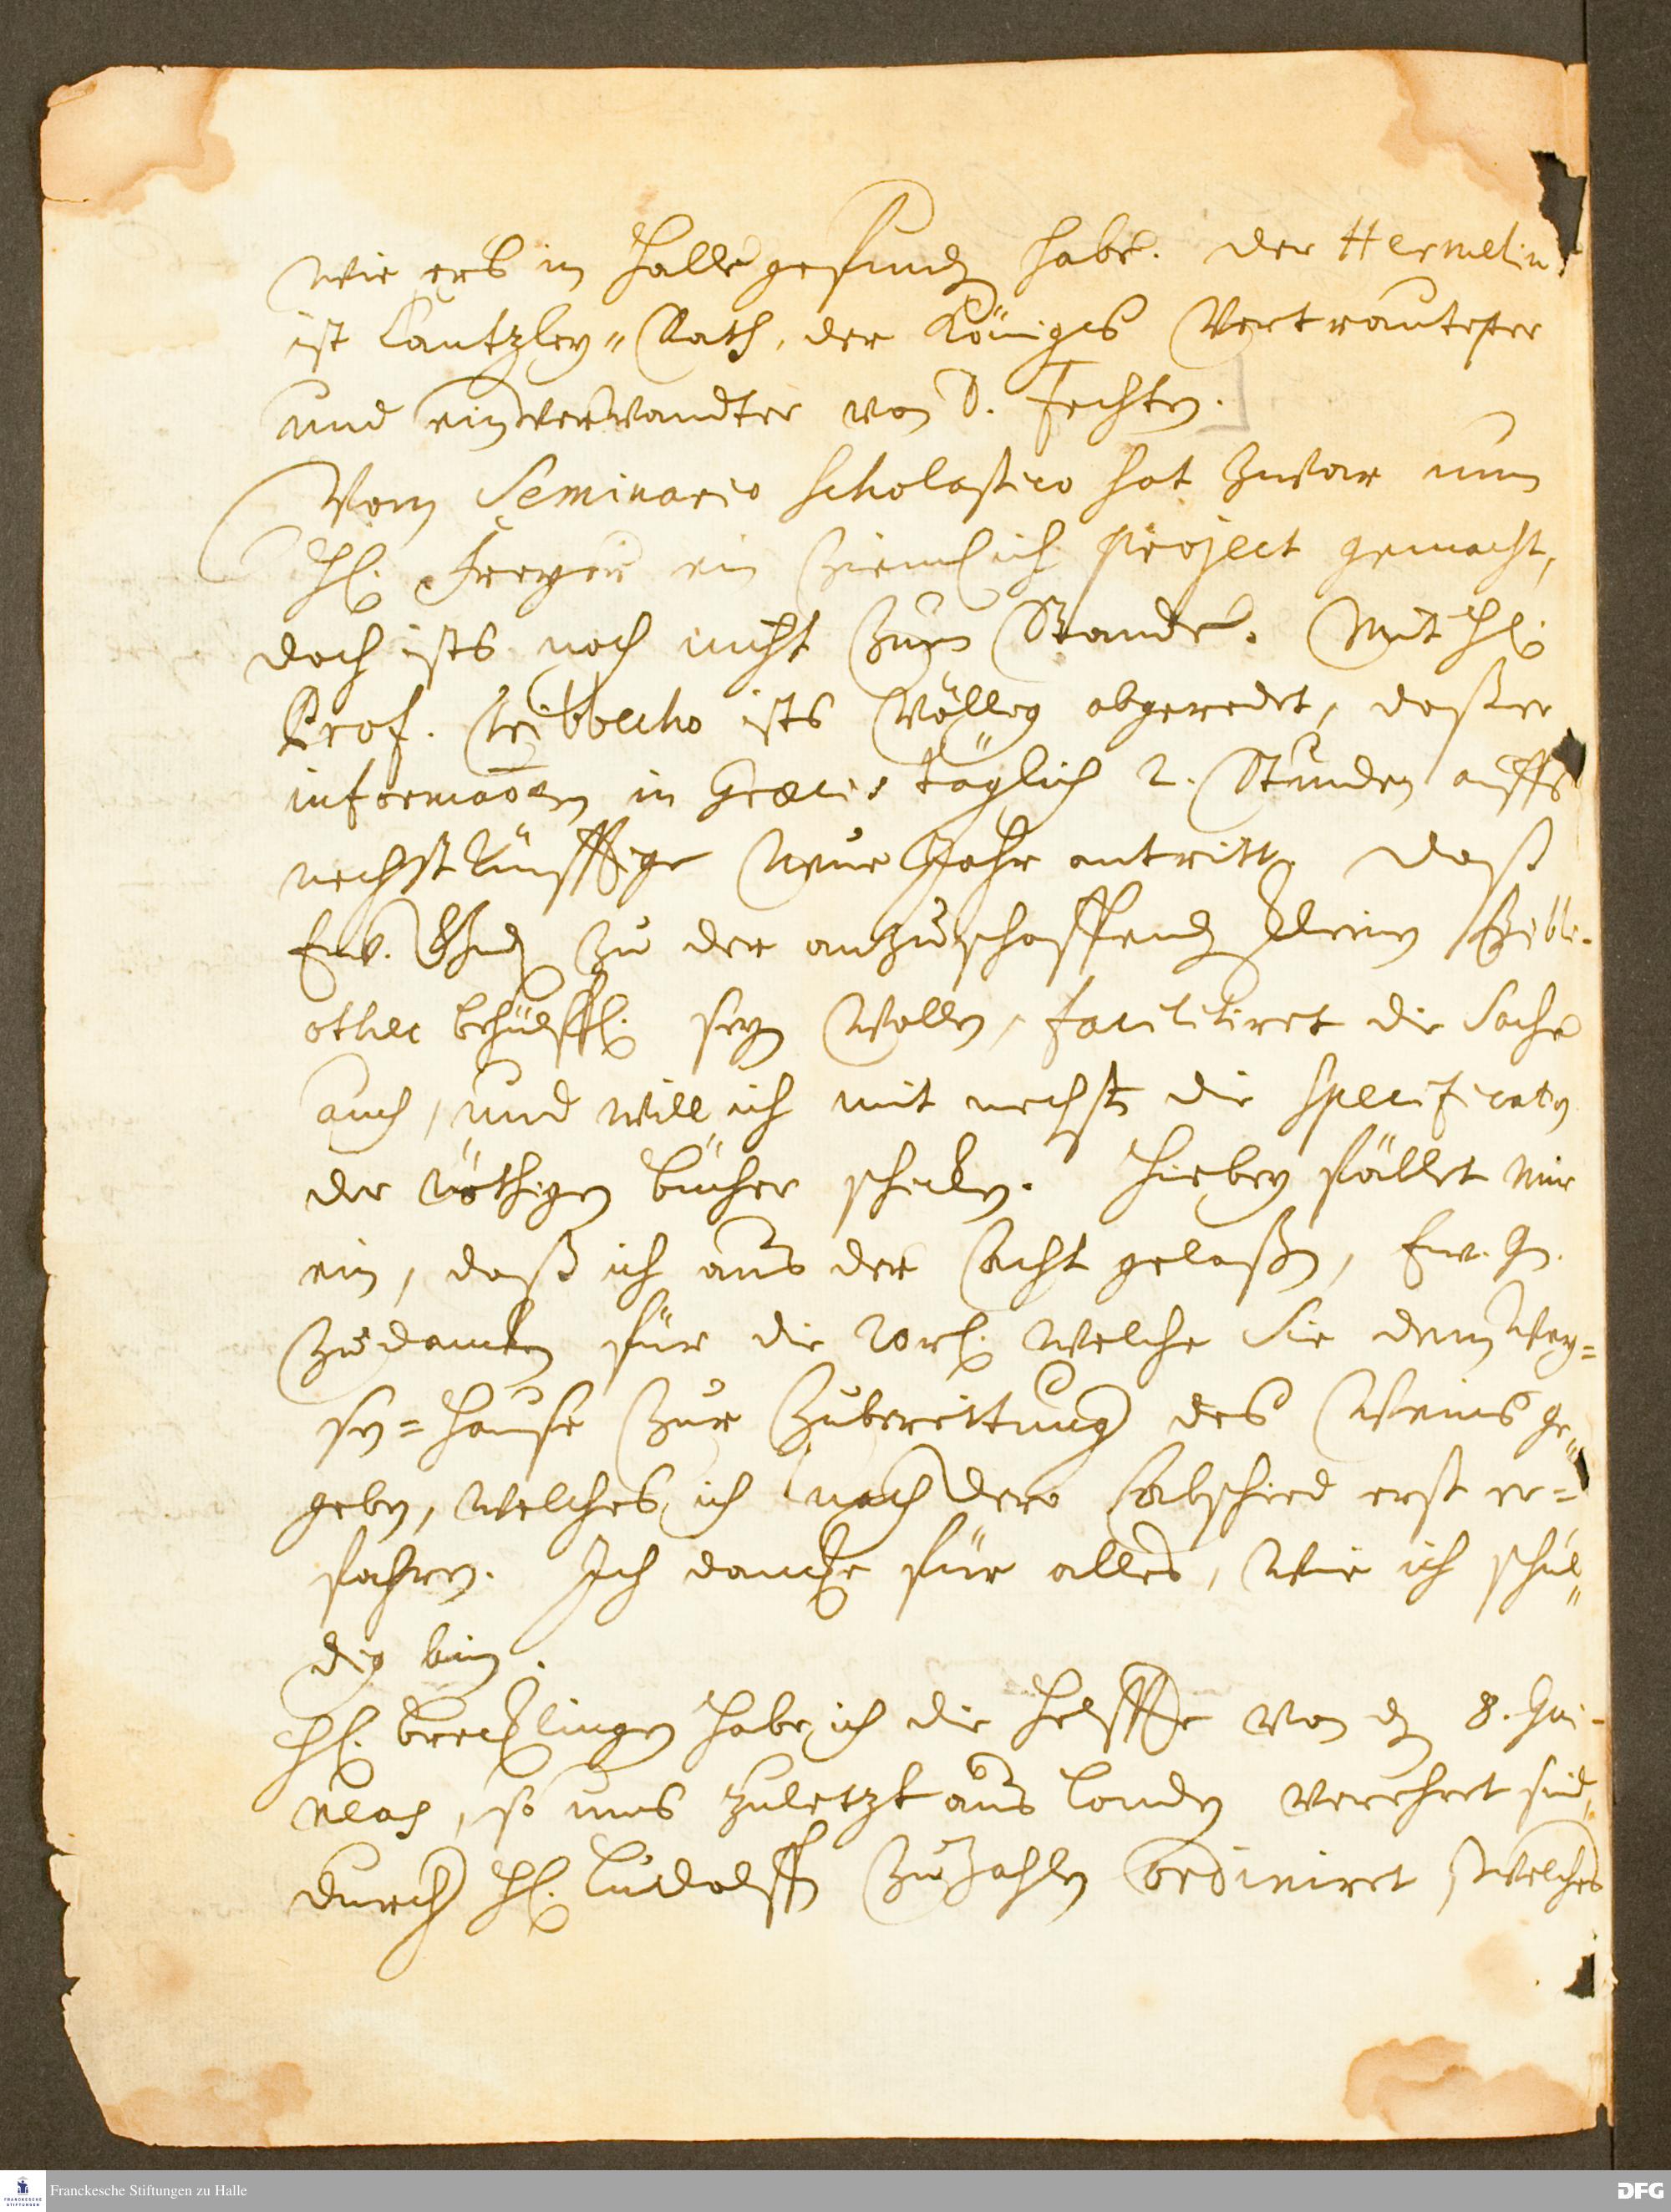 wie ers in Halle gefunden habe. Der Hermelin
ist Cantzley„Rath, der Königes Vertrautester
und ein verwandter von D. Fechten.
Vom Seminario scholastico hat zwar nun
H. Freyer ein ziemlich project gemacht,
doch ists noch nicht zum Stande. Mit H.
Prof. Tribbecho ists völlig abgeredet, daß er
informationem in Graecis täglich 2. Stunden auffs
nechstkünfftige Neue Jahr antritt. Daß
Ew. Gnd. zu der anzuschaffenden kleinen Bibli-
othec behülffl. seyn wollen, facilitiret die Sache
auch, und will ich mit nechsten die specification
der nöthigen bücher schicken. Hiebey fället mir
ein, daß ich aus der Acht gelaßen, Ew. Gn.
zu dancken für die 20 rl. welche Sie dem Way=
sen=Hause zur Zubereittung des Weins ge„
geben, welches ich nach dero Abschied erst er=
fahren. Ich dancke für alles, wie ich schul„
dig bin.
H. Brecklingen habe ich die Helffte von den 8. Gui-
neas, so uns zuletzt aus Londen verehret sind,
durch H. Ludolffen zu zahlen ordiniret welches
Franckesche Stiftungen zu Halle
DFG